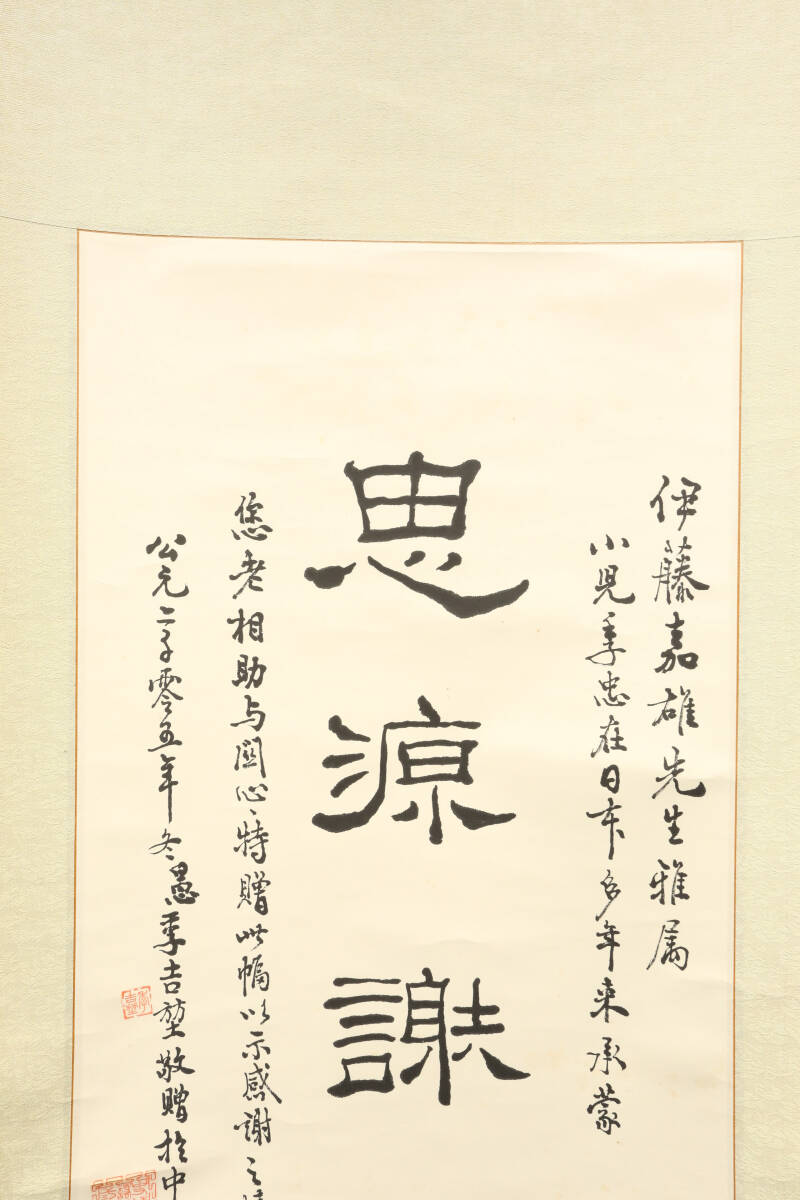 伊藤嘉雄先生雅属
小児季忠在日本多年来承蒙
思源謝
您老相助与関心、特贈此幅以示感謝之情
公元二千零五年冬愚季吉堃敬贈於中